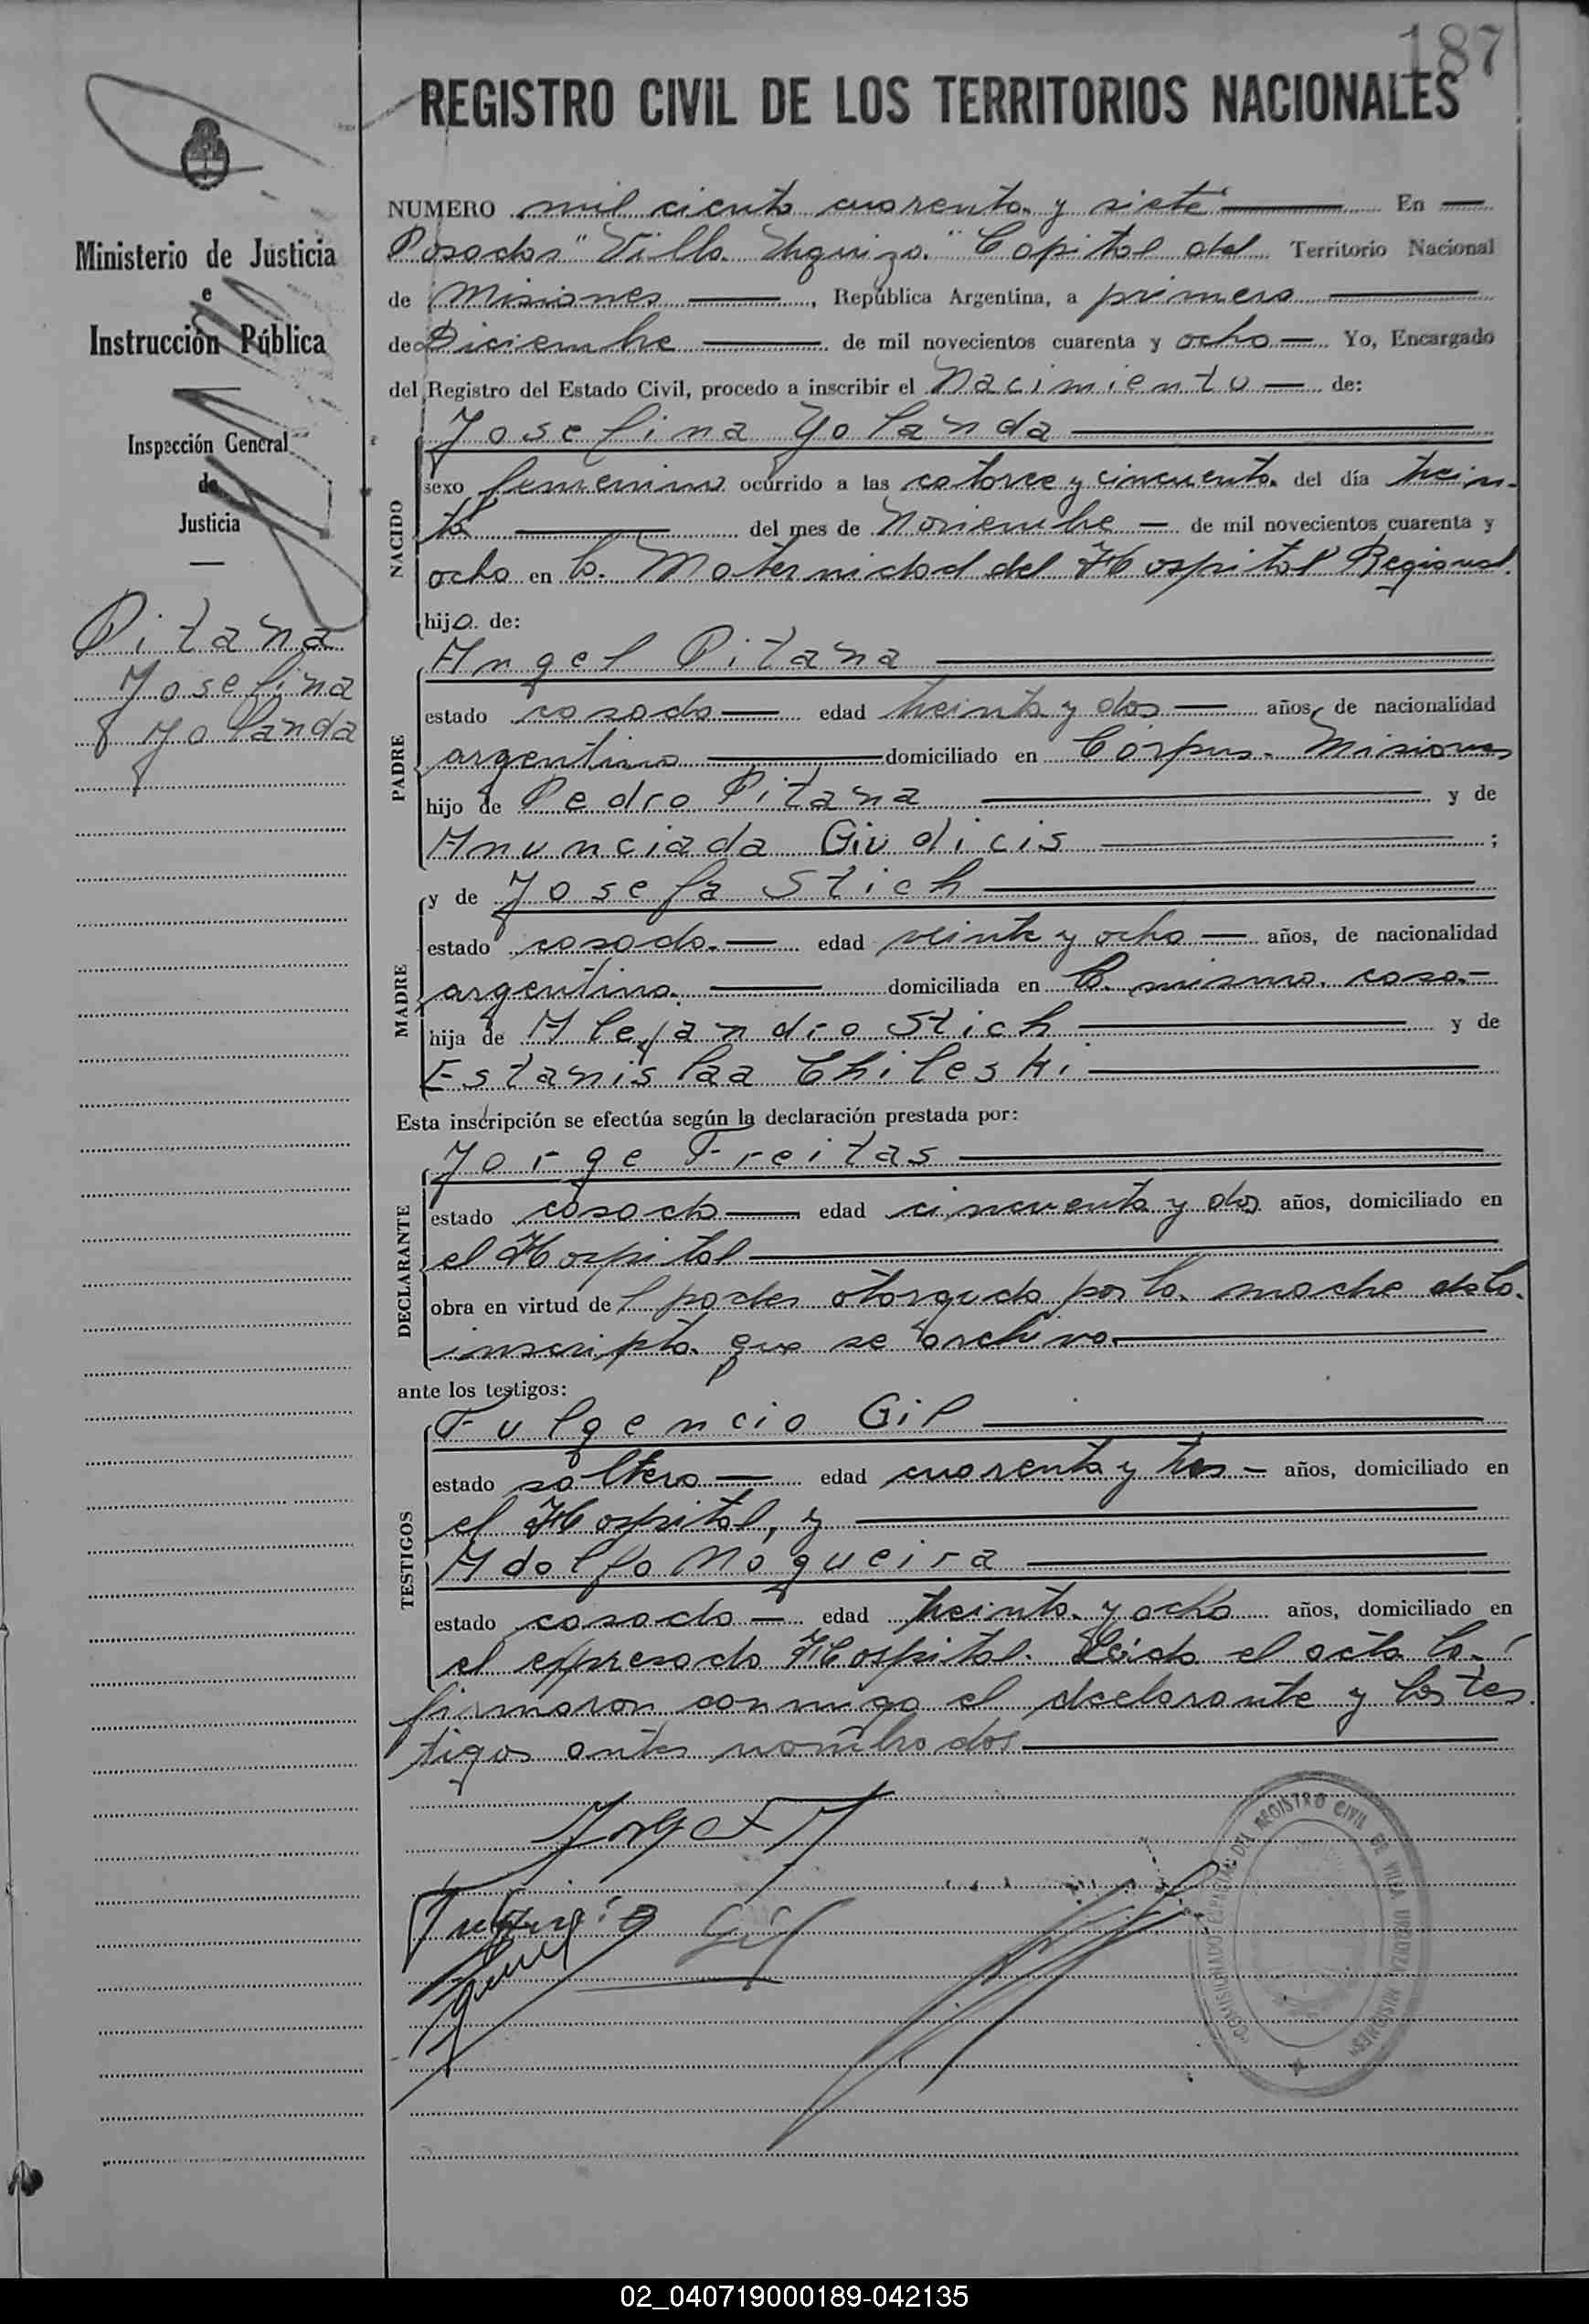 187
REGISTRO CIVIL DE LOS TERRITORIOS NACIONALES
Ministerio de Justicia
e
Instrucción Pública
Inspección General
de
Justicia
Pitana
Josefina
Yolanda
NUMERO mil ciento cuarenta y siete En
Posadas "Villa Urquiza." Capital del Territorio Nacional
de Misiones, República Argentina, a primero
de Diciembre de mil novecientos cuarenta y ocho Yo, Encargado
del Registro del Estado Civil, procedo a inscribir el Nacimiento de:
NACIDO
Josefina Yolanda
sexo femenino ocurrido a las catorce y cincuenta del día trein-
ta del mes de Noviembre de mil novecientos cuarenta y
ocho en la Maternidad del Hospital Regional.
hija de:
PADRE
Angel Pitana
estado casado edad treinta y dos años, de nacionalidad
argentino domiciliado en Córpus - Misiones
hijo de Pedro Pitana y de
Anunciada Giudicis ;
MADRE
y de Josefa Stich
estado casada edad veinte y ocho años, de nacionalidad
argentina domiciliada en la misma casa.-
hija de Alejandro Stich y de
Estanislaa Chileski
Esta inscripción se efectúa según la declaración prestada por:
DECLARANTE
Jorge Freitas
estado casado edad cincuenta y dos años, domiciliado en
el Hospital
obra en virtud del poder otorgado por la madre de la
inscripta que se archiva.
ante los testigos:
TESTIGOS
Fulgencio Gil
estado soltero edad cuarenta y tres años, domiciliado en
el Hospital, y
Adolfo Nogueira
estado casado edad treinta y ocho años, domiciliado en
el expresado Hospital. Leída el acta la
firmaron conmigo el declarante y los tes
tigos antes nombrados
Jorge F
Fulgencio Gil
DEL REGISTRO CIVIL DE VILLA URQUIZA MISIONES
02_040719000189-042135